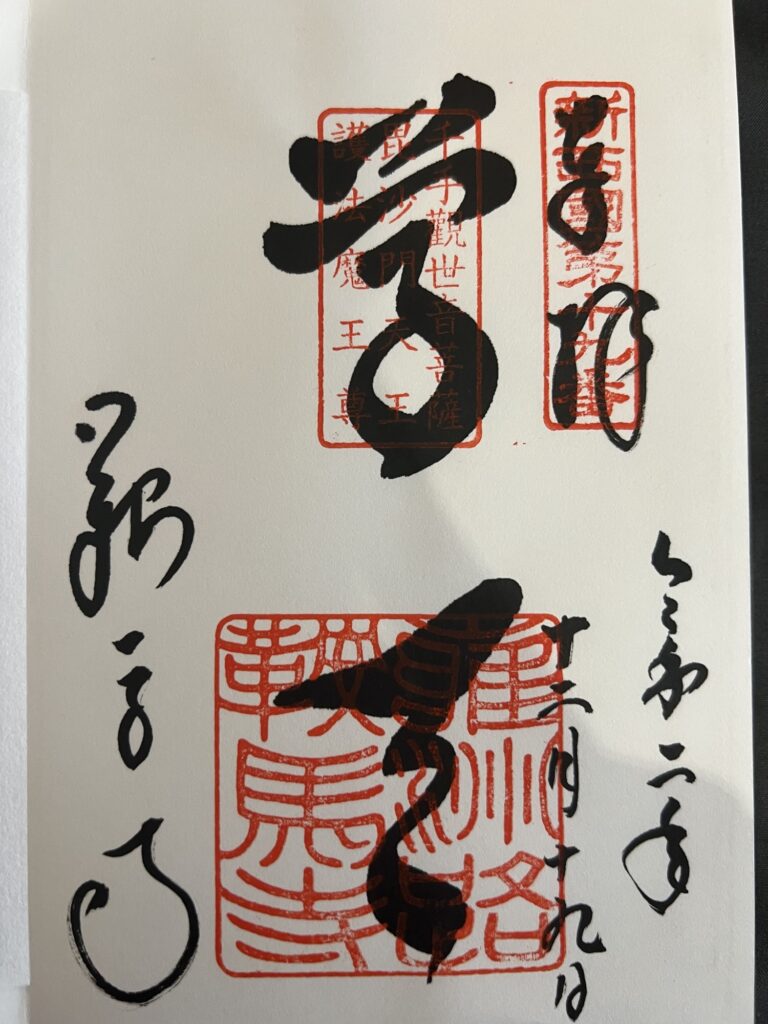 奉拝
新西國第十九番
令和二年
十二月十九日
尊天
千手觀世音菩薩
毘沙門天王
護法魔王尊
鞍馬寺
鞍馬寺